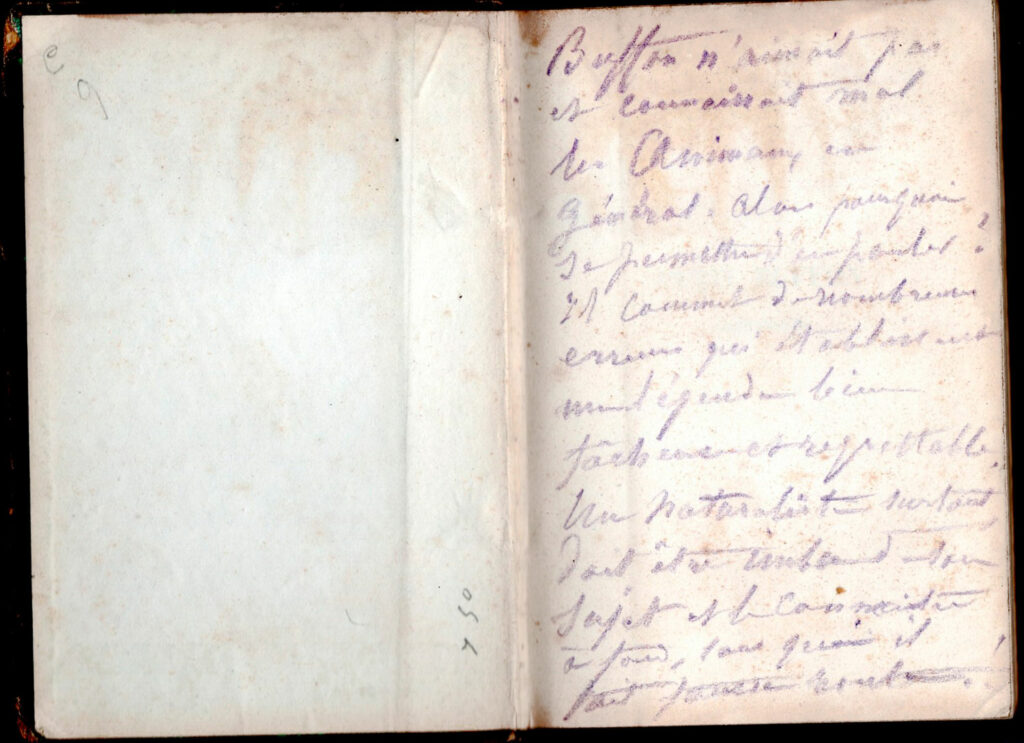 9
450
Buffon n'aimait pas
et connaissait mal
les Animaux en
général. Alors pourquoi
se permettre d'en parler ?
Il commit de nombreuses
erreurs qui établissent
une légende bien
fâcheuse et regrettable.
Un Naturaliste surtout
doit être imbu de son
sujet et le connaître
à fond, sans quoi il
fait fausse route !